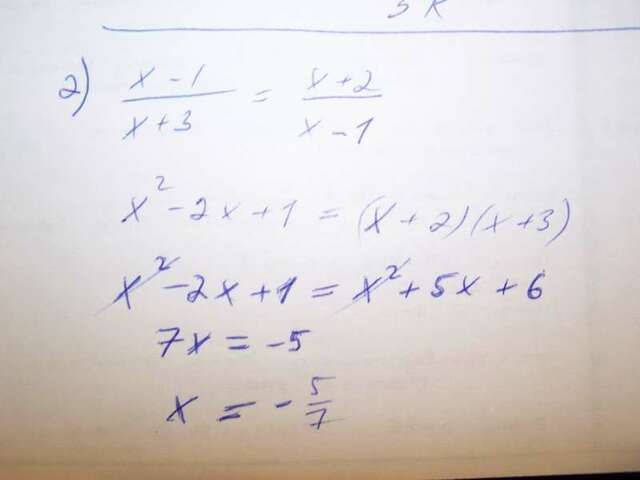 5 k
2) \frac{x-1}{x+3} = \frac{x+2}{x-1}
x² - 2x + 1 = (x + 2)(x + 3)
x² - 2x + 1 = x² + 5x + 6
7x = -5
x = - \frac{5}{7}